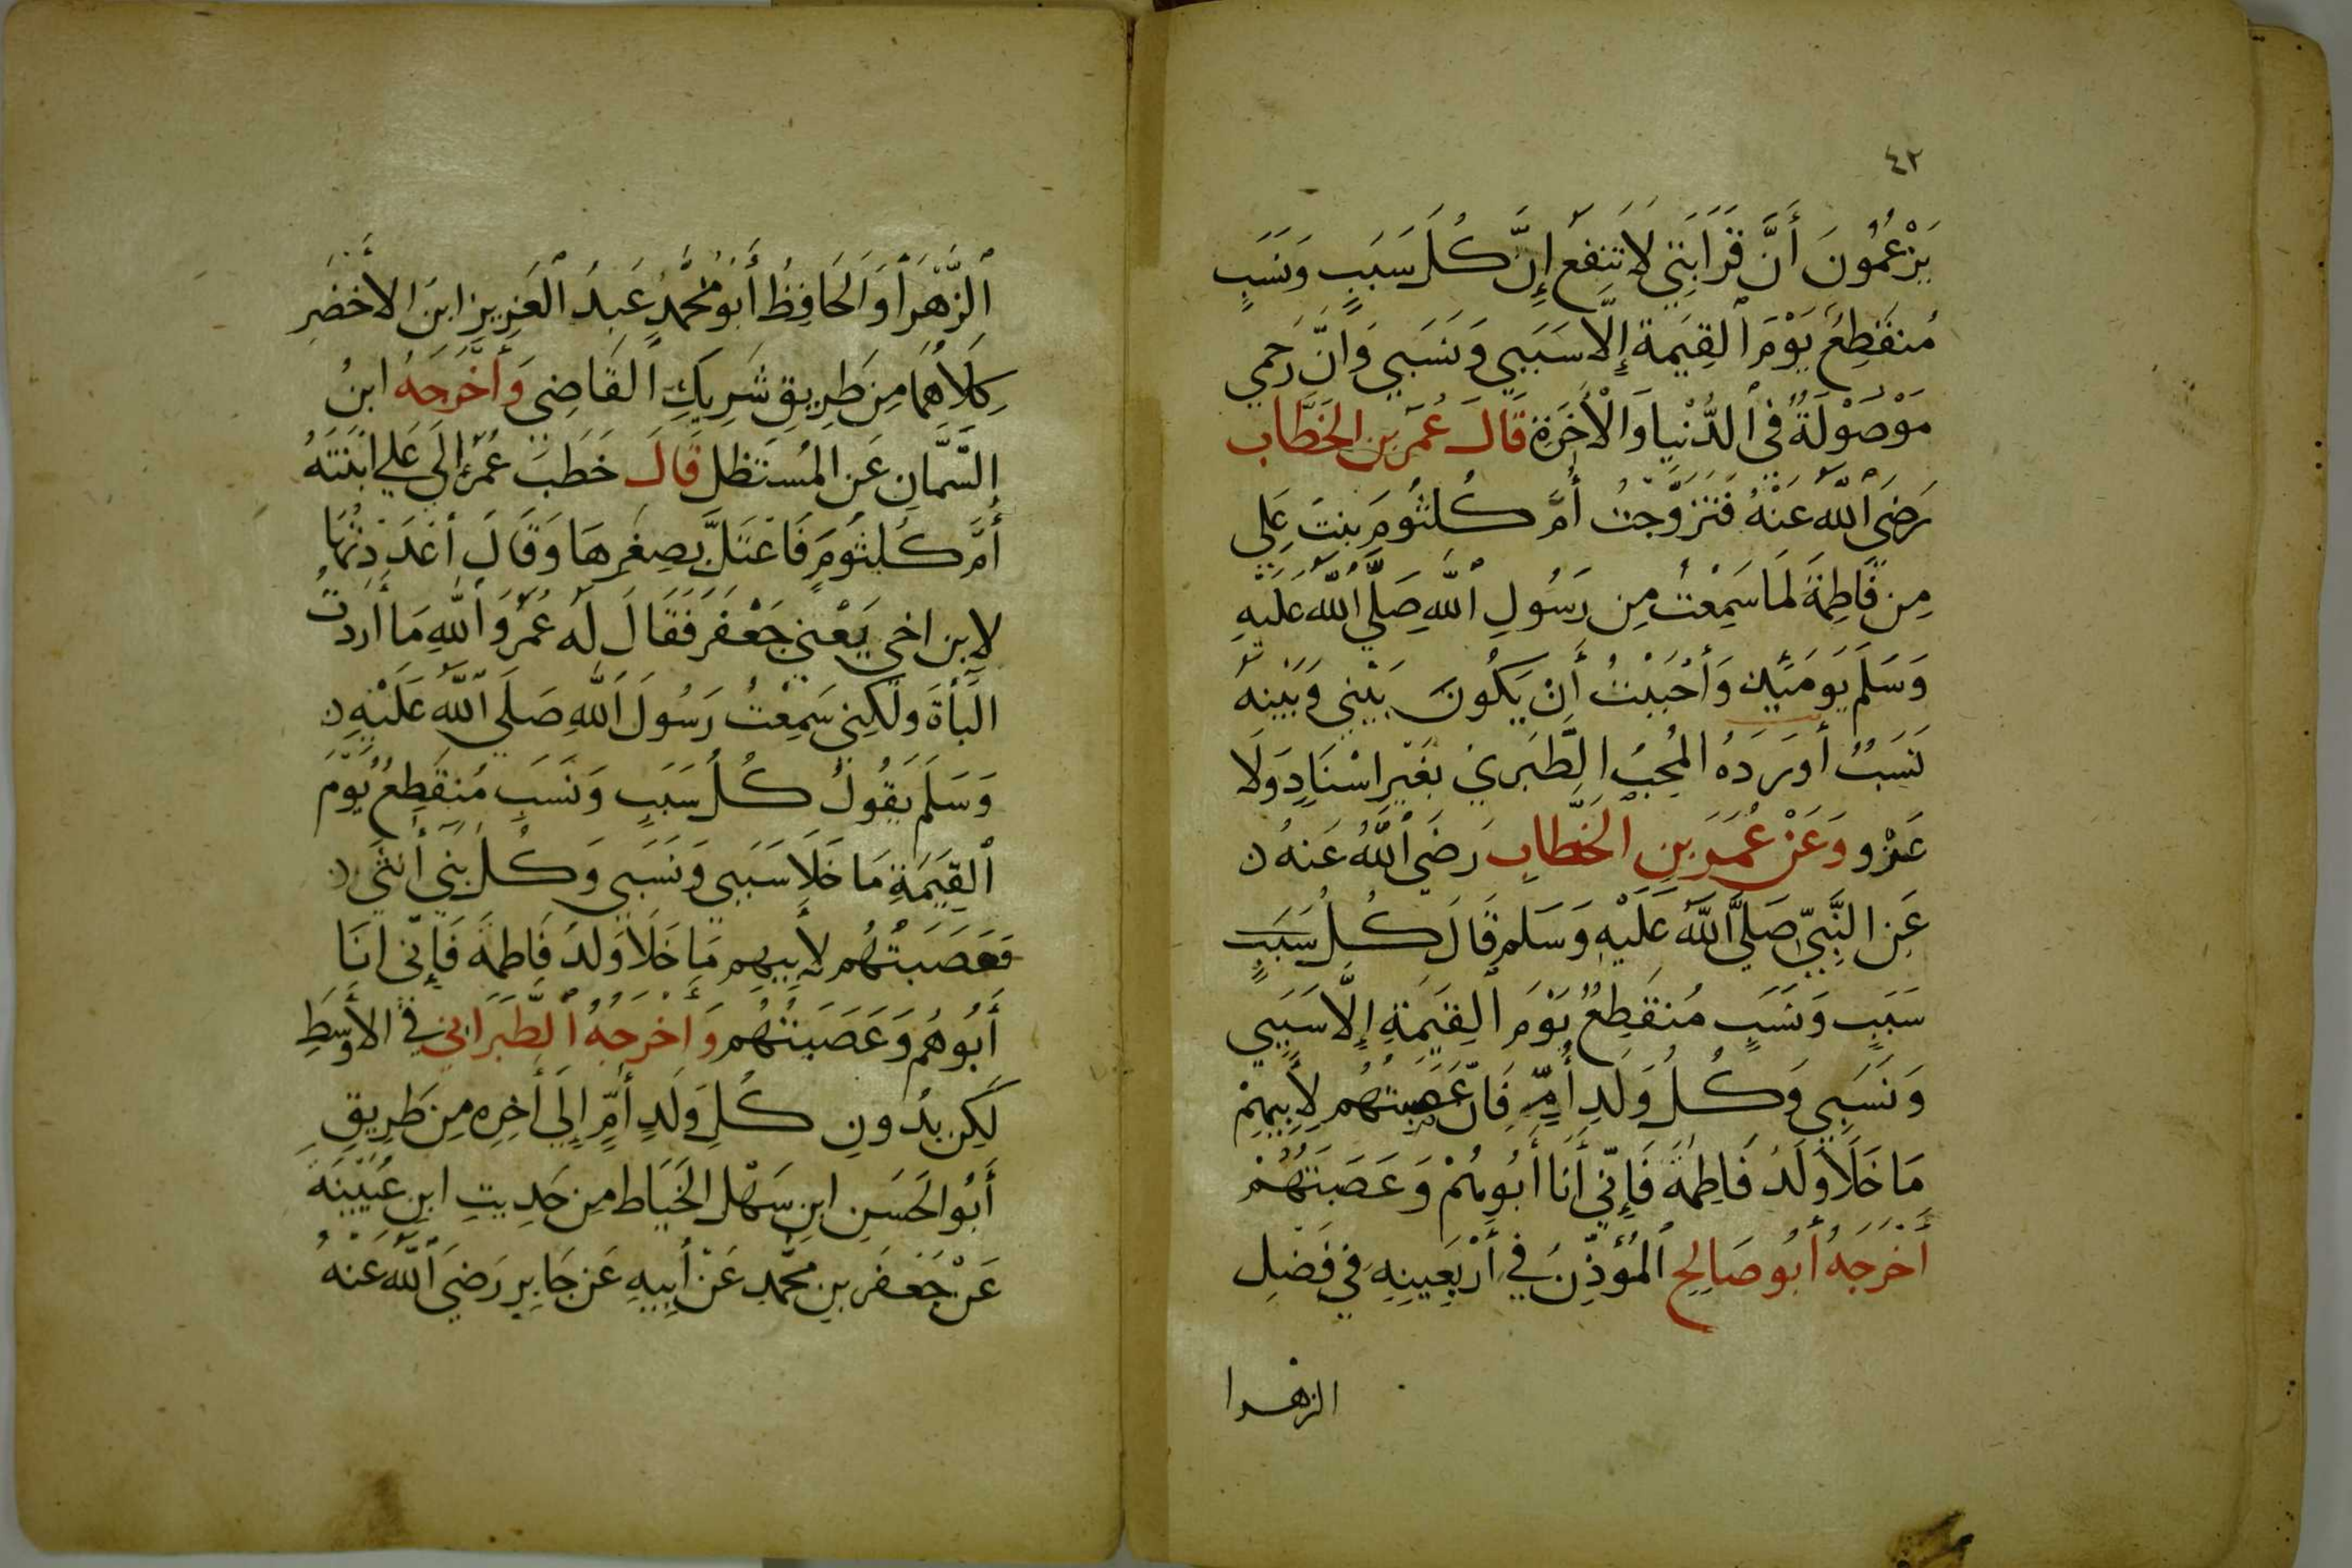 ٤٢
يَزْعُمُونَ أَنَّ قَرَابَتِي لَا تَنفَعُ إِنَّ كُلَ سَبَبٍ وَنَسَبٍ
مُنقَطِعٌ يَوْمَ ٱلقِيَمَةِ إِلَّا سَبَبِي وَنَسَبِي وَانّ رَحِمِي
مَوْصُوْلَةٌ فِي ٱلدُّنْيا وَالْأَخَرَةِ قَالَ عُمَرَ بنِ الخَطَّاب
رَضِيَ ٱللَّهُ عَنْهُ فَتَزَوَّجتُ أُمَّ كُلثُومَ بِنتَ عَلِي
مِن فَاطِمَةَ لَمَا سَمِعْتُ مِن رَسُولِ ٱللَّهِ صَلَّي ٱللَّهُ عَلَيْهِ
وَسَلَم يَومَئِينَ وَأَحْبَبْتُ أَنْ يَكُونَ بَيْنِي وَبَيْنهُ
نَسَبٌ أَورَدَهُ المُحِبُ الطَّبَرِي بِغَيْرِ اسْنَادٍ وَلَا
عَزْو وَعَنْ عُمَرَ بنِ الخَطَّابِ رَضَي ٱللَّهُ عَنهُ ن
عَنِ النَّبِيِّ صَلَّي ٱللَّهُ عَلَيْهِ وَسَلم قَالَ كُلُ سَبَبٍ
سَبَبٍ وَنَسَبٍ مُنقَطِعٌ يَوْمَ ٱلقِيَمَةِ إِلَّا سَبَبِي
وَنَسَبِي وَكُلُ وَلَدِ أُمٍّ فَانَّ عَصَبَتهُم لِأَبِيهِمْ
مَا خَلَا وَلَدُ فَاطِمَةَ فَإِنِّي أَنَا أَبُوهُمْ وَعَصَبَتُهُمْ
أَخْرَجَهُ أَبُو صَالِحِ ٱلمُؤَذِّنُ فِي أَرْبَعِينِهِ فِي فَضْلِ
الزهرا
ٱلزَّهْرَا وَالحَافِظُ أَبُو مُحَمَّدٍ عَبدُ ٱلعَزِيزِ ابنَ الأَخضَرِ
كِلَاهُمَا مِن طَرِيقِ شَرِيكِ ٱلقَاضِي وَأَخْرَجَهُ ابنُ
السَّمَّانِ عَنِ المُسْتَظِل قَالَ خَطَبَ عُمَرُ إِلَي عَلِي ابنَتَهُ
أُمَّ كُلثُومَ فَاعْتَلَّ بِصِغَرِهَا وَقَالَ أَعْدَدْتُهَا
لِابنِ اخي يَعْنِي جَعْفَر فَقَالَ لَه عُمَرُ وَٱللَّهِ مَا أَرَدتُ
البَأةَ وَلَكِنِي سَمِعْتُ رَسُولَ ٱللَّهِ صَلَّي ٱللَّهُ عَلَيْهِ ن
وَسَلَم يَقُولُ كُلُ سَبَبٍ وَنَسَبٍ مُنقَطِعٌ يَوْمَ
ٱلقِيَمَةِ مَا خَلَا سَبَبِي وَنَسَبِي وَكُلُ بَنِي أُنثَي ن
فَعَصَبَتُهُم لِأَبِيهِم مَا خَلَا وَلَدَ فَاطِمَةَ فَإِنِّي انَا
أَبُوهُم وَعَصَبَتُهُم وَأَخْرَجَهُ ٱلطَّبَرَانِي فِي الأَوسَطِ
لَكِن بِدُونِ كُلِ وَلَدِ أُمٍّ إِلَي أَخِرِه مِن طَرِيقِ
أَبُو الحَسَنِ ابنِ سَهْلِ الخَيَاطِ مِن حَدِيثِ ابنِ عُيَيْنَةَ
عَنْ جَعْفَر بنِ مُحَمَّدٍ عَنْ أَبِيهِ عَن جَابِرِ رَضَي ٱللَّهُ عَنْهُ